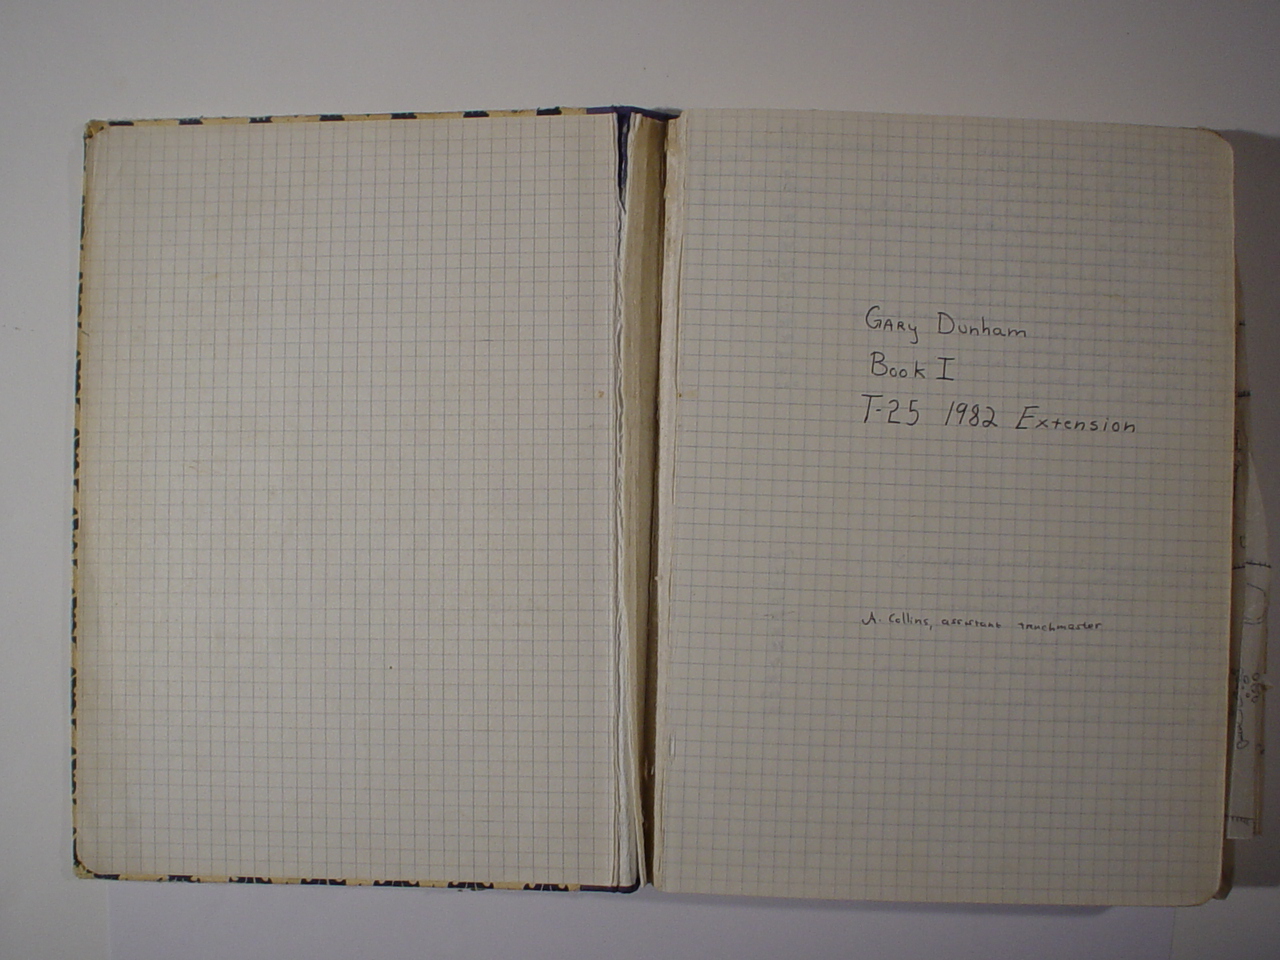 GARY Dunham
Book I
T-25 1982 Extension
A. Collins, assistant trenchmaster